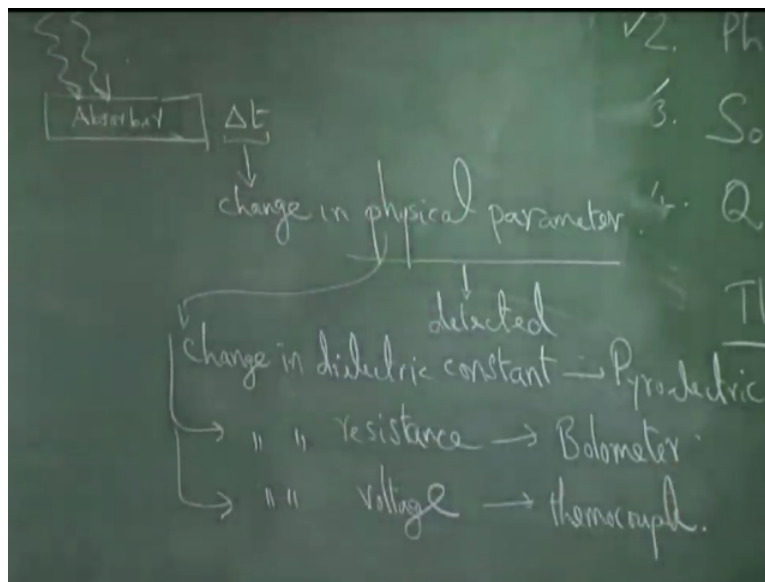 ✓2. Ph
Absorber Δt
3. So
change in physical parameter.
4. Q
detected
Th
change in dielectric constant → Pyroelectric
" " resistance → Bolometer
" " voltage → themocouple.